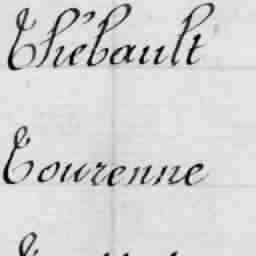 Thébault
Tourenne